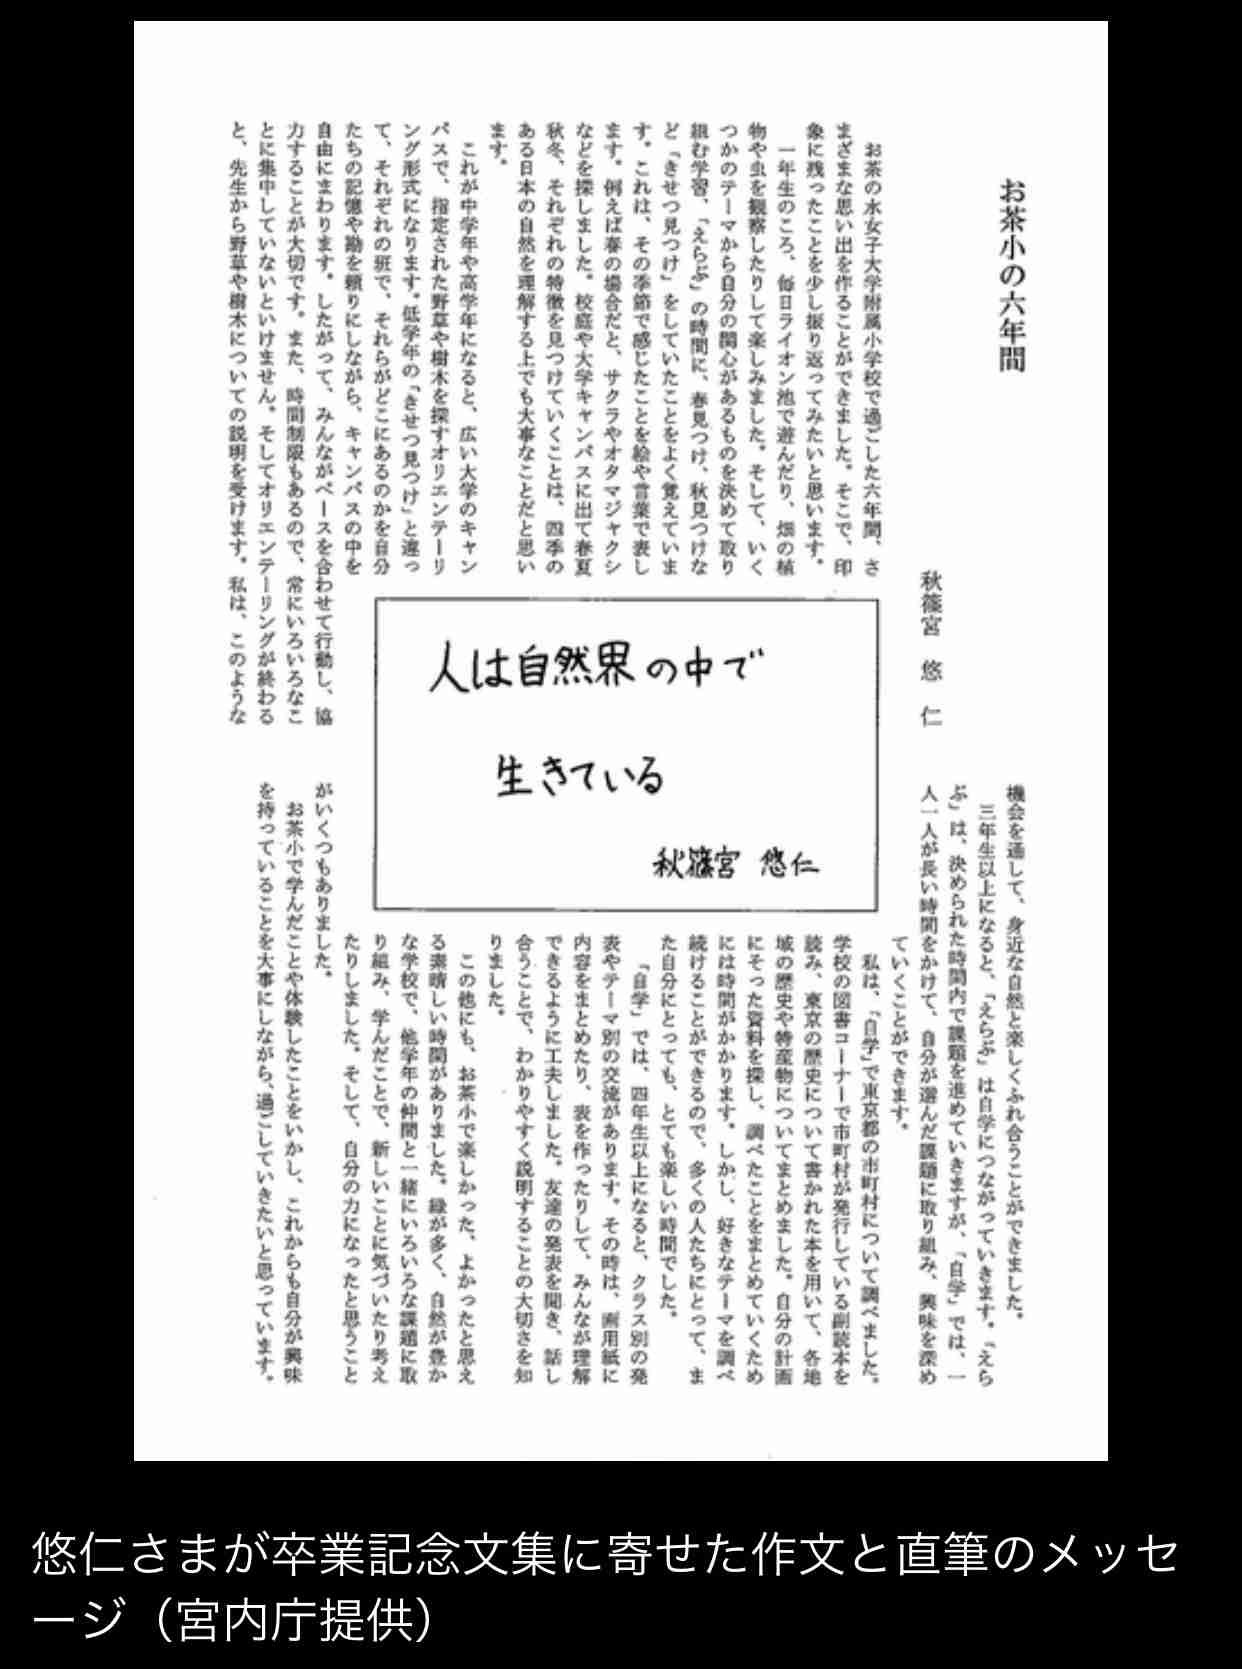 お茶小の六年間
秋篠宮　悠　仁
お茶の水女子大学附属小学校で過ごした六年間、さ
まざまな思い出を作ることができました。そこで、印
象に残ったことを少し振り返ってみたいと思います。
一年生のころ、毎日ライオン池で遊んだり、畑の植
物や虫を観察したりして楽しみました。そして、いく
つかのテーマから自分の関心があるものを決めて取り
組む学習、「えらぶ」の時間に、春見つけ、秋見つけな
ど「きせつ見つけ」をしていたことをよく覚えていま
す。これは、その季節で感じたことを絵や言葉で表し
ます。例えば春の場合だと、サクラやオタマジャクシ
などを探しました。校庭や大学キャンパスに出て春夏
秋冬、それぞれの特徴を見つけていくことは、四季の
ある日本の自然を理解する上でも大事なことだと思い
ます。
これが中学年や高学年になると、広い大学のキャン
パスで、指定された野草や樹木を探すオリエンテーリ
ング形式になります。低学年の「きせつ見つけ」と違っ
て、それぞれの班で、それらがどこにあるのかを自分
たちの記憶や勘を頼りにしながら、キャンパスの中を
自由にまわります。したがって、みんながペースを合わせて行動し、協
力することが大切です。また、時間制限もあるので、常にいろいろなこ
とに集中していないといけません。そしてオリエンテーリングが終わる
と、先生から野草や樹木についての説明を受けます。私は、このような
人は自然界の中で
生きている
秋篠宮 悠仁
機会を通して、身近な自然と楽しくふれ合うことができました。
三年生以上になると、「えらぶ」は自学につながっていきます。「えら
ぶ」は、決められた時間内で課題を進めていきますが、「自学」では、一
人一人が長い時間をかけて、自分が選んだ課題に取り組み、興味を深め
ていくことができます。
私は、「自学」で東京都の市町村について調べました。
学校の図書コーナーで市町村が発行している副読本を
読み、東京の歴史について書かれた本を用いて、各地
域の歴史や特産物についてまとめました。自分の計画
にそった資料を探し、調べたことをまとめていくため
には時間がかかります。しかし、好きなテーマを調べ
続けることができるので、多くの人たちにとって、ま
た自分にとっても、とても楽しい時間でした。
「自学」では、四年生以上になると、クラス別の発
表やテーマ別の交流があります。その時は、画用紙に
内容をまとめたり、表を作ったりして、みんなが理解
できるように工夫しました。友達の発表を聞き、話し
合うことで、わかりやすく説明することの大切さを知
りました。
この他にも、お茶小で楽しかった、よかったと思え
る素晴しい時間がありました。緑が多く、自然が豊か
な学校で、他学年の仲間と一緒にいろいろな課題に取
り組み、学んだことで、新しいことに気づいたり考え
たりしました。そして、自分の力になったと思うこと
がいくつもありました。
お茶小で学んだことや体験したことをいかし、これからも自分が興味
を持っていることを大事にしながら、過ごしていきたいと思っています。
悠仁さまが卒業記念文集に寄せた作文と直筆のメッセ
ージ（宮内庁提供）